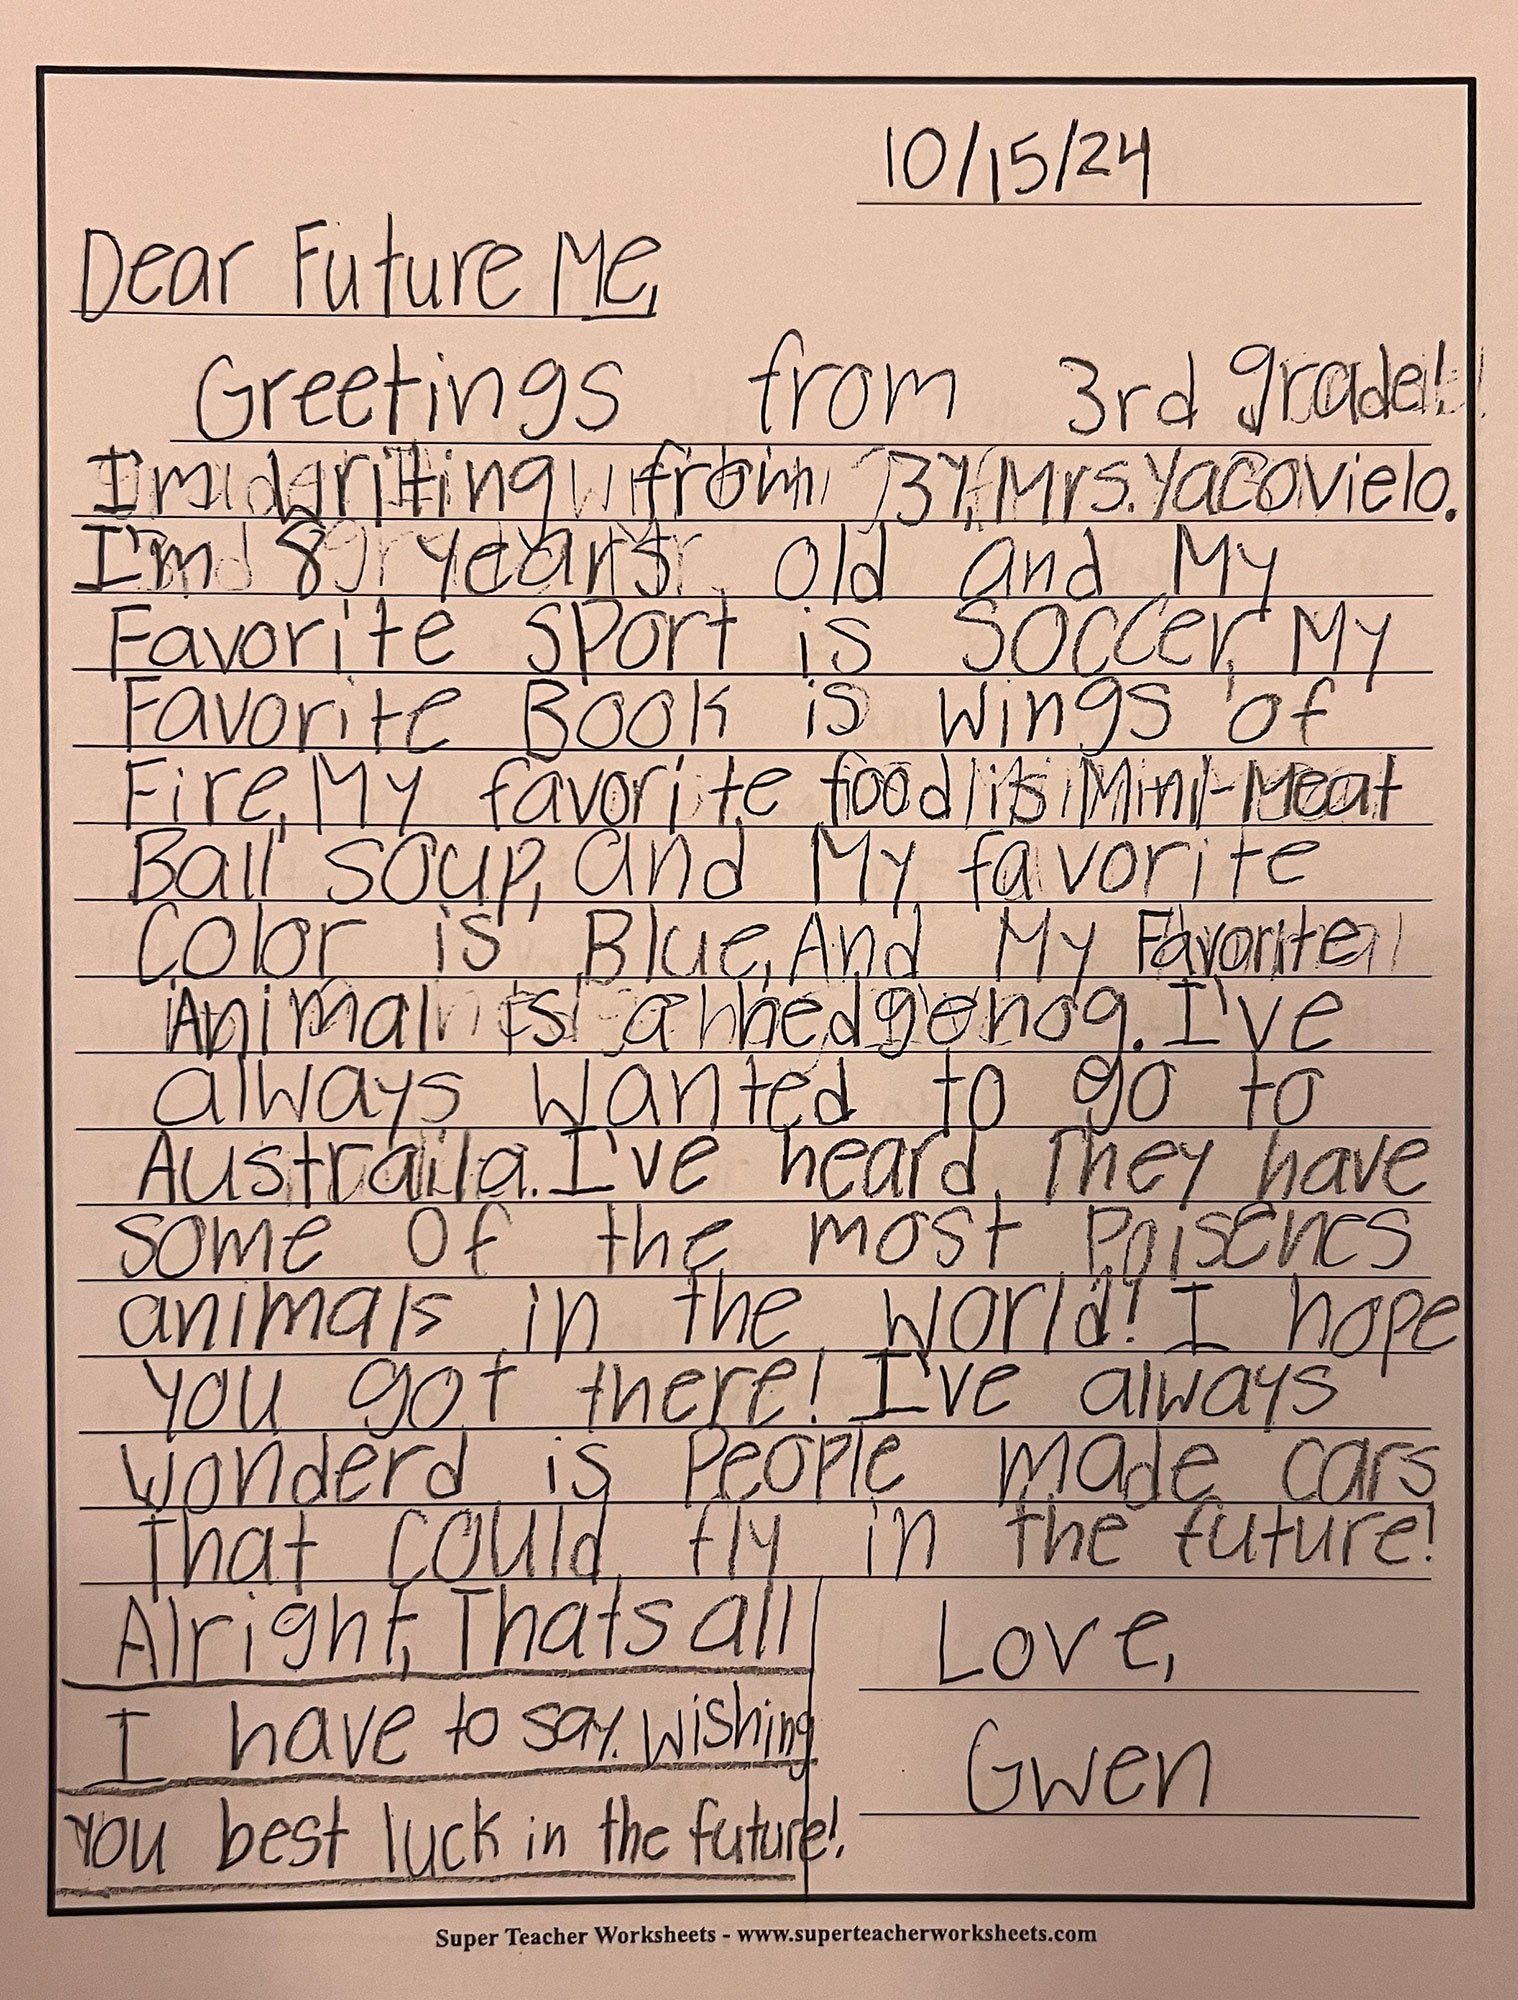 10/15/24
Dear Future Me,
Greetings from 3rd grade!
I'm writing from 3Y, Mrs. Yacovielo.
I'm 8 years old and My
Favorite sport is soccer, My
Favorite Book is Wings of
Fire, My favorite food is Mini-Meat
Ball soup, and My favorite
Color is Blue, And My Favorite
Animal is a hedgehog. I've
always wanted to go to
Australia. I've heard They have
some of the most Poisenes
animals in the world! I hope
you got there! I've always
wonderd is People made cars
That could fly in the future!
Alright, Thats all
I have to say. Wishing
you best luck in the future!.
Love,
Gwen
Super Teacher Worksheets - www.superteacherworksheets.com